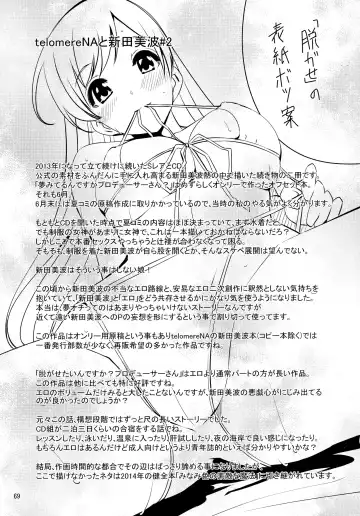 telomereNAと新田美波#2
「脱がせの
表紙ボツ案
2013年になって立て続けに続いたSレアとCD。
公式の素材をふんだんに手に入れ高まる新田美波熱の中で描いた続き物の二冊です。
「夢みてるんですかプロデューサーさん?」はめずらしくオンリーで作ったオフセット本。
それも6月。
6月末には夏コミの原稿作成に取りかかっているので、当時の私のやる気がよく分かります。
もともとCDを聞いた時点で夏コミの内容はほぼ決まっていて、まず水着だと。
でも制服の女神があまりに女神で、これは一本描いておかねばならないだろう?
しかしここで本番セックスやっちゃうと仕様が合わなくって困る。
そもそも、制服を着た新田美波が自ら股を開くとか、そんなスサベ展開は望んでない。
新田美波はそういう事はしない娘!
この頃から新田美波の不当なエロ路線と、安易なエロ二次創作に釈然としない気持ちを
抱いていて、「新田美波」と「エロ」をどう共存させるかにかなり気を使うようになりました。
本当は「夢オチ」ってのはあまりやっちゃいけないストーリーなんですが
近くて遠い新田美波へのPの妄想を形にするという事で割り切って使ってます。
この作品はオンリー用原稿という事もありtelomereNAの新田美波本(コピー本除く)では
一番発行部数が少なく再販希望の多かった作品です。
「脱がせたいんですか?プロデューサーさん?」はエロより通常パートの方が長い作品。
この作品は他に比べても特に好評ですね。
エロのボリュームだけみると大したことないんですが、新田美波の悪戯心がにじみ出てる
のが良かったのでしょうか?
元々この話、構想段階ではずっと尺の長いストーリーでした。
CD組が二泊三日くらいの合宿をする話でね。
レッスンしたり、泳いだり、温泉に入ったり、肝試ししたり、夜の海岸で良い感じになったり。
もちろんエロはあるんだけど成人向けというより青年誌的といえば分かりやすいかな?
結局、作画時間的な都合でその辺はばっさり諦める事になりましたが、
69